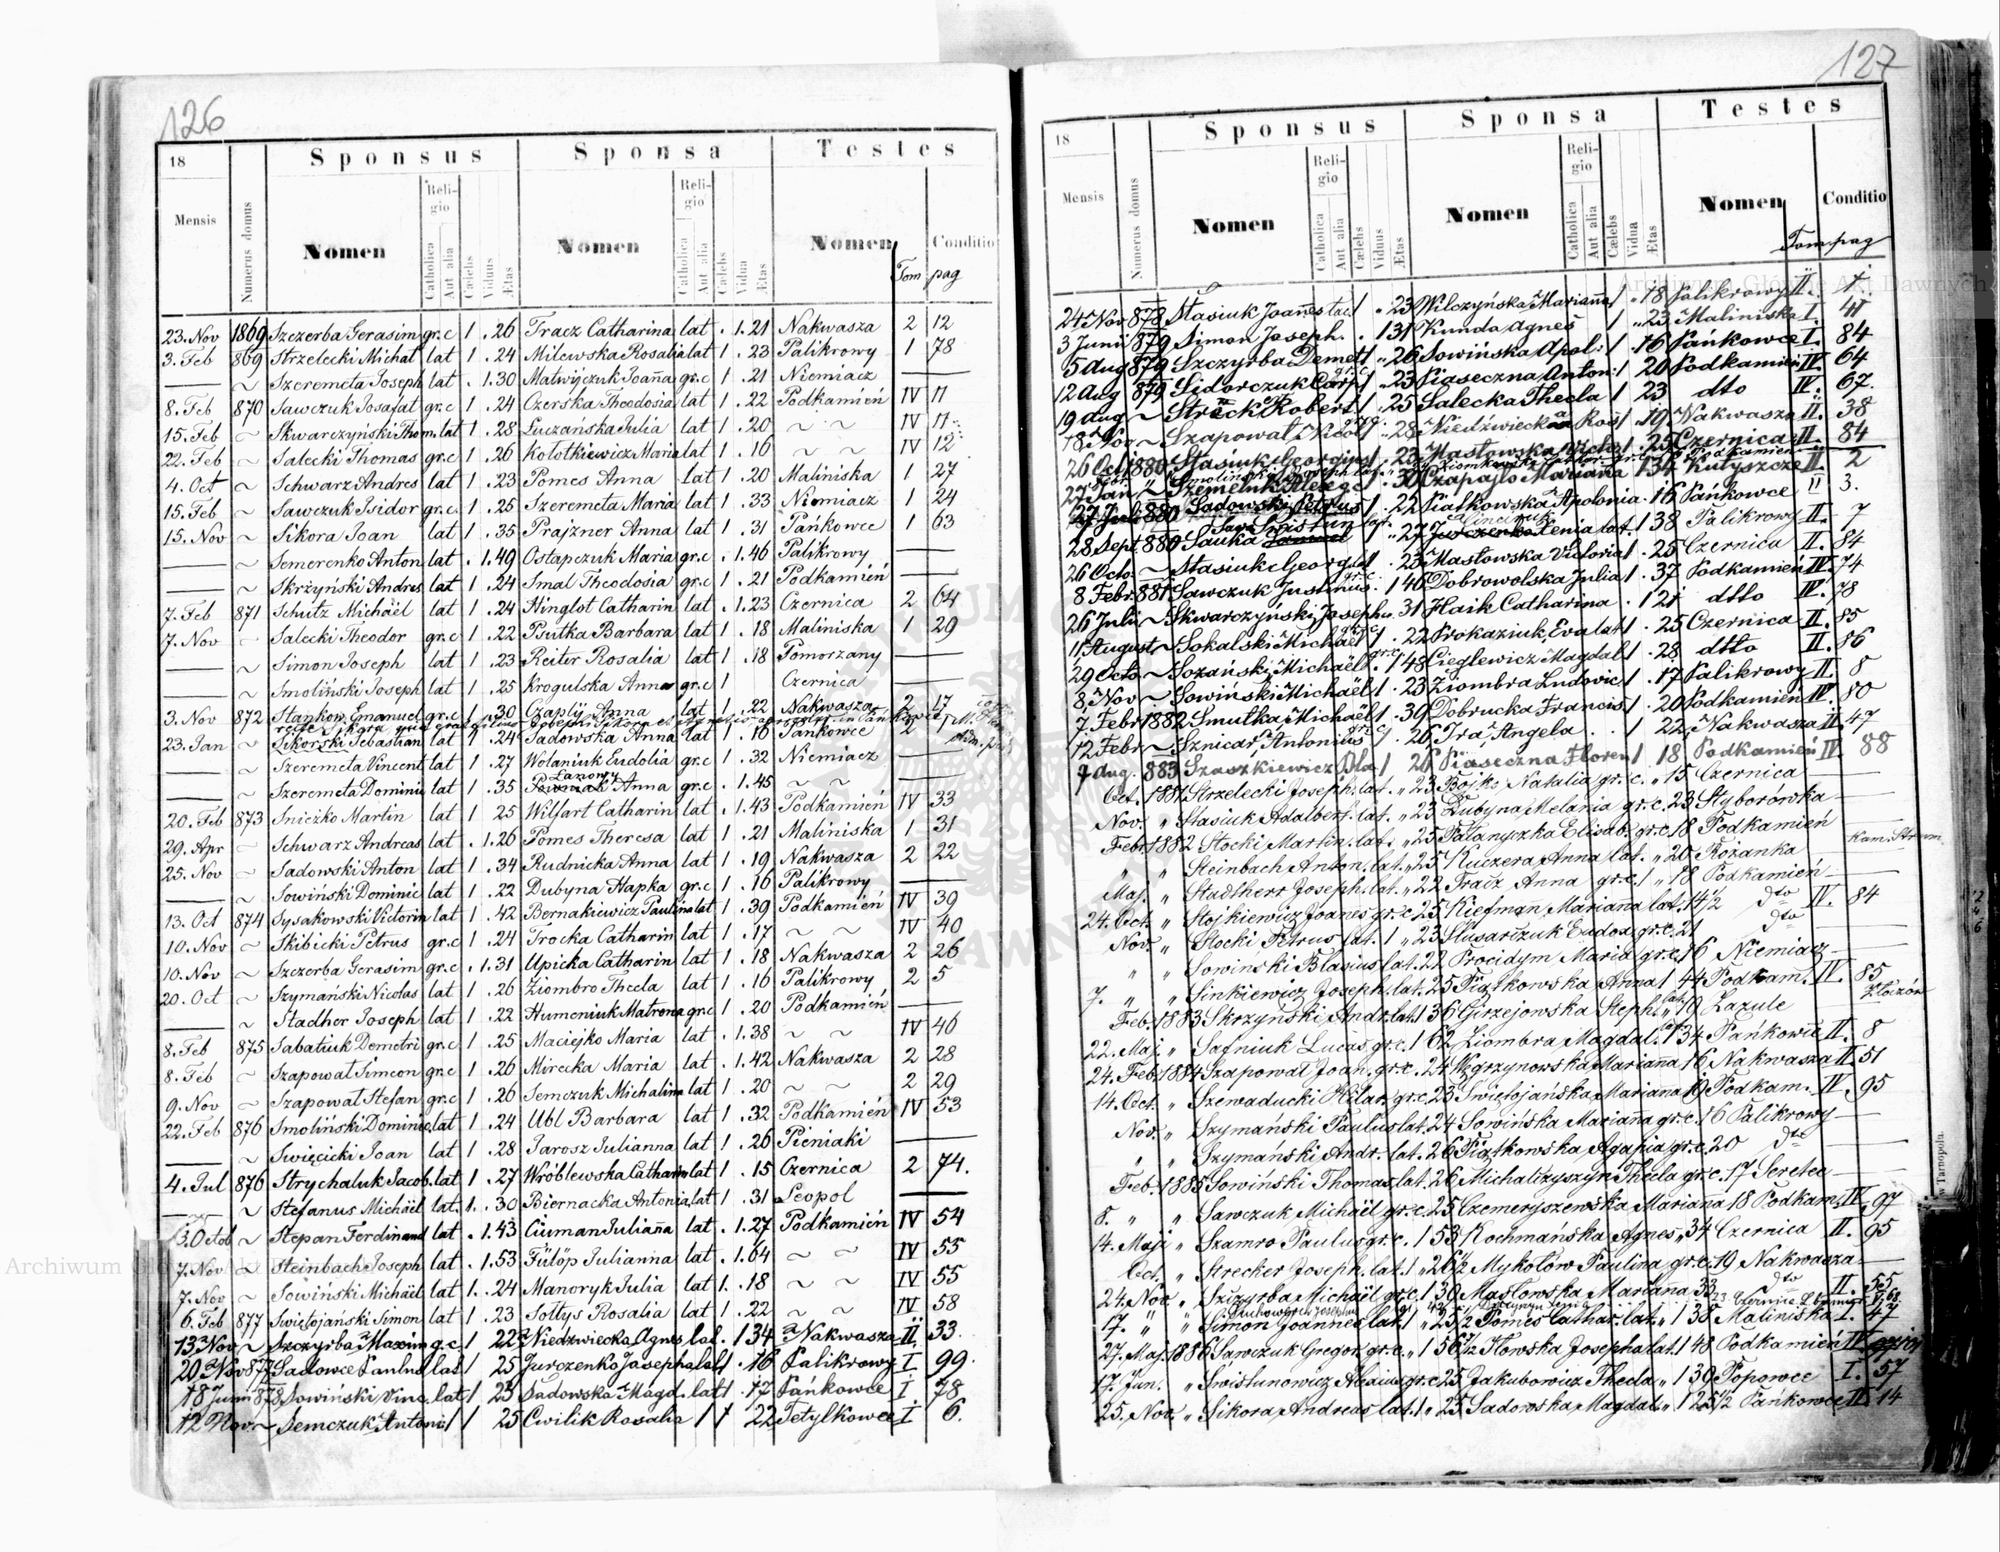 126
18 Sponsus Sponsa Testes
Mensis Numerus domus Nomen Religio Catholica Aut alia Cælebs Viduus Ætas Nomen Religio Catholica Aut alia Cælebs Vidua Ætas Nomen Conditio
Tom pag
23. Nov 1869 Szczerba Gerasim gr.c 1 . 26 Tracz Catharina lat . 1. 21 Nakwasza 2 12
3. Feb 869 Strzelecki Michał lat 1 . 24 Milewska Rosalia lat 1 . 23 Palikrowy 1 78
— ~ Szeremeta Joseph lat . 1. 30 Matwijczuk Joanna gr.c 1 . 21 Niemiacz —
8. Feb 870 Sawczuk Josafat gr.c 1 . 24 Czerska Theodosia lat 1 . 22 Podkamień IV 11
15. Feb ~ Skwarczyński Thom. lat 1 . 28 Łuczańska Julia lat 1 . 20 ~ ~ IV 11
22. Feb ~ Salecki Thomas gr.c 1 . 26 Kołotkiewicz Maria lat 1 . 16 ~ ~ IV 12
4. Oct ~ Schwarz Andres lat 1 . 23 Pomes Anna lat 1 . 20 Maliniska 1 27
15. Feb ~ Sawczuk Isidor gr.c 1 . 25 Szeremeta Maria lat 1 . 33 Niemiacz 1 24
15. Nov ~ Sikora Joan lat 1 . 35 Prajzner Anna lat 1 . 31 Pańkowce 1 63
— ~ Semerenko Anton lat . 1. 49 Ostapczuk Maria gr.c . 1. 46 Palikrowy —
— ~ Skrzyński Andres lat 1 . 24 Smal Theodosia gr.c 1 . 21 Podkamień —
7. Feb 871 Schutz Michaël lat 1 . 24 Hinglot Catharin lat . 1. 23 Czernica 2 64
7. Nov ~ Salecki Theodor gr.c 1 . 22 Psutka Barbara lat 1 . 18 Maliniska 1 29
— ~ Simon Joseph lat 1 . 23 Reiter Rosalia lat 1 . 18 Pomorzany —
— ~ Smoliński Joseph lat 1 . 25 Krogulska Anna gr.c 1 Czernica —
3. Nov 872 Stankow Emanuel gr.c 1 . 30 Czaply Anna lat 1 . 22 Nakwasza 2 17
23. Jan ~ Sikorski Sebastian lat 1 . 24 Sadowska Anna lat 1 . 16 Pańkowce 2 1
— ~ Szeremeta Vincent lat 1 . 27 Wolaniuk Eudolia gr.c 1 . 32 Niemiacz —
— ~ Szeremeta Dominic lat 1 . 35 Anna gr.c . 1. 45 ~ ~
20. Feb 873 Śnieżko Martin lat 1 25 Wilfart Catharin lat . 1. 43 Podkamień IV 33
29. Apr ~ Schwarz Andreas lat . 1. 26 Pomes Theresa lat 1 . 21 Maliniska 1 31
25. Nov ~ Sadowski Anton lat 1 . 34 Rudnicka Anna lat 1 . 19 Nakwasza 2 22
— ~ Sowiński Dominic lat 1 . 22 Dubyna Hapka gr.c 1 . 16 Palikrowy —
13. Oct 874 Sysakowski Victorin lat 1 . 42 Bernakiewicz Paulina lat 1 . 39 Podkamień IV 39
10. Nov ~ Skibicki Petrus gr.c 1 . 24 Trocka Catharin lat 1 . 17 ~ ~ IV 40
10. Nov ~ Szczerba Gerasim gr.c . 1. 31 Upicka Catharin lat 1 . 18 Nakwasza 2 26
20. Oct ~ Szymański Nicolas lat 1 . 26 Ziombro Thecla lat 1 . 16 Palikrowy 2 5
— ~ Stadher Joseph lat 1 . 22 Humeniuk Matrona gr.c 1 . 20 Podkamień —
8. Feb 875 Sabatiuk Demetri gr.c 1 . 25 Maciejko Maria lat . 1. 38 ~ ~ IV 46
8. Feb ~ Szapował Simeon gr.c 1 . 26 Mirecka Maria lat . 1. 42 Nakwasza 2 28
9. Nov ~ Szapował Stefan gr.c 1 . 26 Semczuk Michalina lat 1 . 20 ~ ~ 2 29
22. Feb 876 Smoliński Dominic. lat 1 . 24 Ubl Barbara lat 1 . 32 Podkamień IV 53
— ~ Święcicki Joan lat 1 . 28 Jarosz Julianna lat 1 . 26 Pieniaki —
4. Jul 876 Strychaluk Jacob. lat 1 . 27 Wróblewska Catharin lat 1 . 15 Czernica 2 74.
~ Stefanus Michäel lat. 1. . 30 Biernacka Antonia lat 1 . 31 Leopol —
3. Octob ~ Stepan Ferdinand lat . 1. 43 Ciuman Julianna lat . 1. 27 Podkamień IV 54
7. Nov ~ Steinbach Joseph lat . 1. 53 Fülöp Julianna lat . 1. 64 ~ ~ IV 55
7. Nov ~ Sowiński Michäel lat 1. . 24 Manoryk Julia lat 1. . 18 ~ ~ IV 55
6. Feb 877 Świętojański Simon lat 1 . 23 Sołtys Rosalia lat 1 . 22 ~ ~ IV 58
13 Nov ~ Szczyrba Maxim g.c 1 22 Niedzwiecka Agnes lat . 1 34 Nakwasza II 33.
20 Nov 877 Sadowce Paulus lat 1 25 Jurczenko Josepha lat 1 . 16 Palikrowy I 99.
18 Junii 878 Sowiński Vinc. lat 1 23 Sadowska Magd. lat 1 . 17 Pańkowce I 78
12 Nov. ~ Semczuk Antoni 1 25 Cwilik Rosalia 1 22 Tetylkowce I 6.
127
18 Sponsus Sponsa Testes
Mensis Numerus domus Nomen Religio Catholica Aut alia Cælebs Viduus Ætas Nomen Religio Catholica Aut alia Cælebs Vidua Ætas Nomen Conditio
Tom pag
24 Nov 878 Stasiuk Joannes lat 1 . 23 Wilczyńska Marianna 1 . 18 Palikrowy II.
3 Junii 879 Simon Joseph . 1 31 Kunda Agnes 1 . 23 Maliniska I. 41
5 Aug 879 Szczyrba Demet 1 . 26 Sowińska Apol: 1 16 Pańkowce I 84
12 Aug 879 Sidorczuk Carp 1 . 23 Piaseczna Anton: 1 20 Podkamień IV 64
19 Aug ~ Streck Robert 1 . 25 Salecka Thecla 1 23 dto IV. 67.
18 Nov ~ Szapował Nicol 1 . 28 Niedzwiecka Ros 1 . 19 Nakwasza II. 38
26 Oct 1880 Stasiuk Georgius 1 . 23 Masłowska Victo 1 . 25 Czernica II. 84
27 Jan " Szemeluk Alex 30 Czapajło Marianna 1 34 Kutyszcze II 2
27 Jul 880 Sadowski Petrus 1 . 22 Piątkowska Apolonia . 16 Pańkowce II 3.
28 Sept 880 Sauka 1 . 27 Xenia lat. 1 38 Palikrowy II. 7
26 Octo. ~ Stasiuk Georg 1 . 23 Masłowska Victoria 1 . 25 Czernica II. 84
8 Febr. 881 Sawczuk Justinus 1 46 Dobrowolska Julia 1 . 37 Podkamień IV. 74
26 Julii ~ Skwarczyński Josephus 31 Hlaik Catharina . 1 21 dtto IV. 78
11 August ~ Sokalski Michaël 1 . 22 Prokaziuk Eva lat 1 . 25 Czernica II. 85
29 Octo. ~ Sozański Michaël . 1 48 Cieglewicz Magdal 1 . 28 dtto II. 86
8. Nov ~ Sowiński Michaël 1 . 23 Ziombra Ludovic 1 . 17 Palikrowy II. 8
7. Febr 1882 Smutka Michaël 1 . 39 Dobrucka Francis 1 . 20 Podkamień IV. 80
12 Febr ~ Sznicar Antonius 1 26 Ira Angela . . 1 22 Nakwasza II. 47
7 Aug. 883 Szaszkiewicz Bla 1 26 Piaseczna Floren 1 18 Podkamień IV. 88
Oct. 1881 Strzelecki Joseph. lat. " 23 Bojko Natalia gr. c. " 15 Czernica —
Nov. " Stasiuk Adalbert. lat. " 23 Dubyna Melania gr. c. 23 Styborówka —
Febr. 1882 Stocki Martin. lat. " 25 Pałanyczka Elisab. gr. c. 18 Podkamień
" " Steinbach Anton. lat. " 25 Kuczera Anna lat. " 20 Rożanka Kam. Strum.
Maj. " Stadtherr Joseph. lat. " 22 Tracz Anna gr. c. 1 " 18 Podkamień —
24. Oct. " Stojkiewicz Joanes gr. c. 25 Kiefman Marianna lat. 14½ dto IV. 84
Nov. " Stocki Petrus lat. 1 " 23 Ślusarczuk Eudox. gr. c. 21 dto —
" " Sowiński Blasius lat. 27 Procidym Maria gr. c. 16 Niemiacz —
7. " " Sinkiewicz Joseph. lat. 25 Piątkowska Anna 1 44 Podkam. IV. 85
Feb. 1883 Skrzyński Andr. lat. 1 36 Girzejowska Steph. " 19 Łazule Złoczów
22. Maj. " Safniuk Lucas gr. c. 1 62 Ziombra Magdal. 1 34 Pańkowce II. 8
24. Feb. 1884 Szapował Joan. gr. c. 24 Węgrzynowska Marianna 16 Nakwasza II. 51
14. Oct. " Szewaducki Hilar. gr. c. 23 Świętojańska Marianna 19 Podkam. IV. 95
Nov. " Szymański Paulus lat. 24 Sowińska Marianna gr. c. 16 Palikrowy —
" " Szymański Andr. lat. 26 Piątkowska Agafia gr. c. 20 dto —
Feb. 1885 Sowiński Thomas lat. 26 Michaliczyszyn Thecla gr. c. 17 Seretec —
8. " " Sawczuk Michaël gr. c. 25 Czemeryszewska Marianna 18 Podkam. IV. 97
14. Maji " Szamro Paulus gr. c. 1 53 Kochmańska Agnes " 34 Czernica II. 95
Oct. " Strecker Joseph. lat. 1 " 26½ Mykołów Paulina gr. c. 19 Nakwasza —
24. Nov. " Szczyrba Michaël gr. c. 1 30 Masłowska Marianna 33 dto II. 55
17. " " Simon Joannes lat. 1 " 23½ Pomes Cathar. lat. " 1 38 Maliniska I. 47
27. Maj. 1886 Sawczuk Gregor. gr. c. " 1 56½ Hłowska Josepha lat. 1 48 Podkamień IV
17. Jun. " Świstunowicz gr. c. 25 Jakubowicz Thecla " 1 39 Popowce I. 57
25. Nov. " Sikora Andreas lat. 1 " 25 Sadowska Magdal. " 1 25½ Pańkowce II. 14
w Tarnopolu.
Archiwum Główne Akt Dawnych